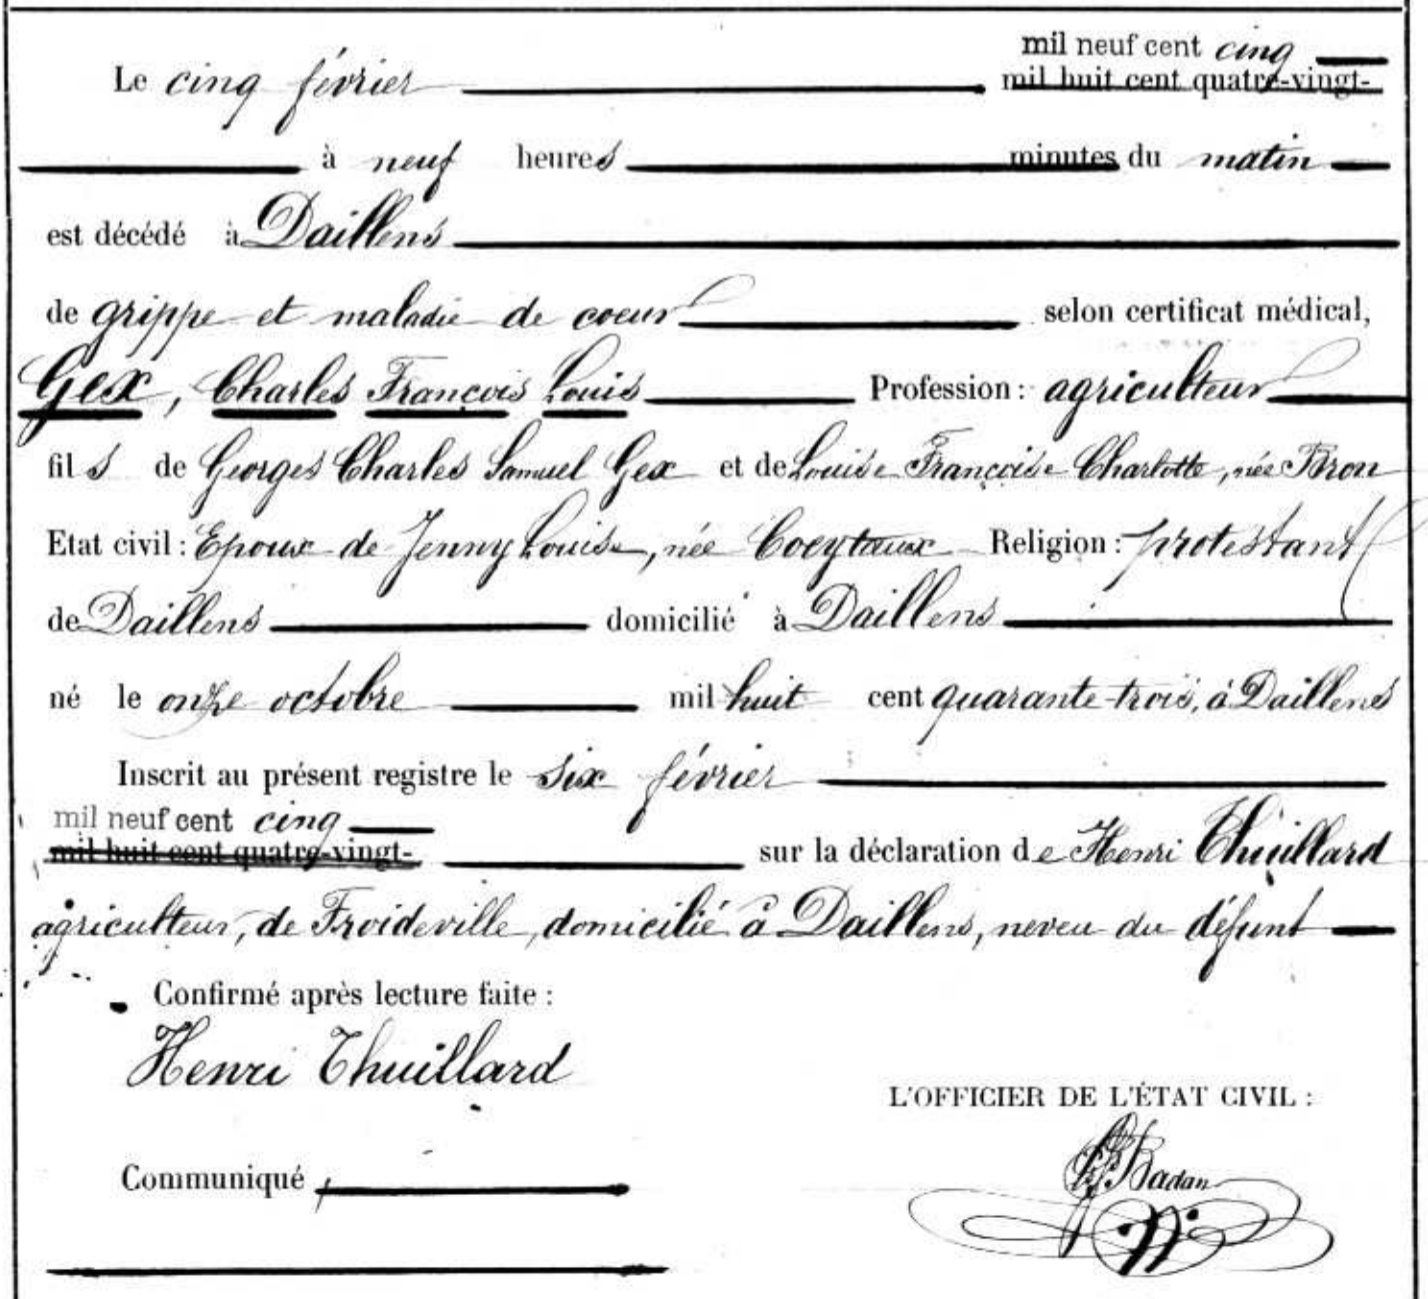 mil neuf cent cinq
Le cinq février mil huit cent quatre-vingt-
à neuf heures minutes du matin
est décédé à Daillens
de grippe et maladie de coeur selon certificat médical,
Gex, Charles François Louis Profession : agriculteur
fils de Georges Charles Samuel Gex et de Louise Françoise Charlotte, née Bron
Etat civil : Epoux de Jenny Louise, née Cocytaux Religion : protestant
de Daillens domicilié à Daillens
né le onze octobre mil huit cent quarante-trois, à Daillens
Inscrit au présent registre le six février
mil neuf cent cinq
mil huit cent quatre-vingt- sur la déclaration de Henri Thuillard
agriculteur, de Froideville, domicilié à Daillens, neveu du défunt
Confirmé après lecture faite :
Henri Thuillard
L'OFFICIER DE L'ÉTAT CIVIL :
Badan
Communiqué